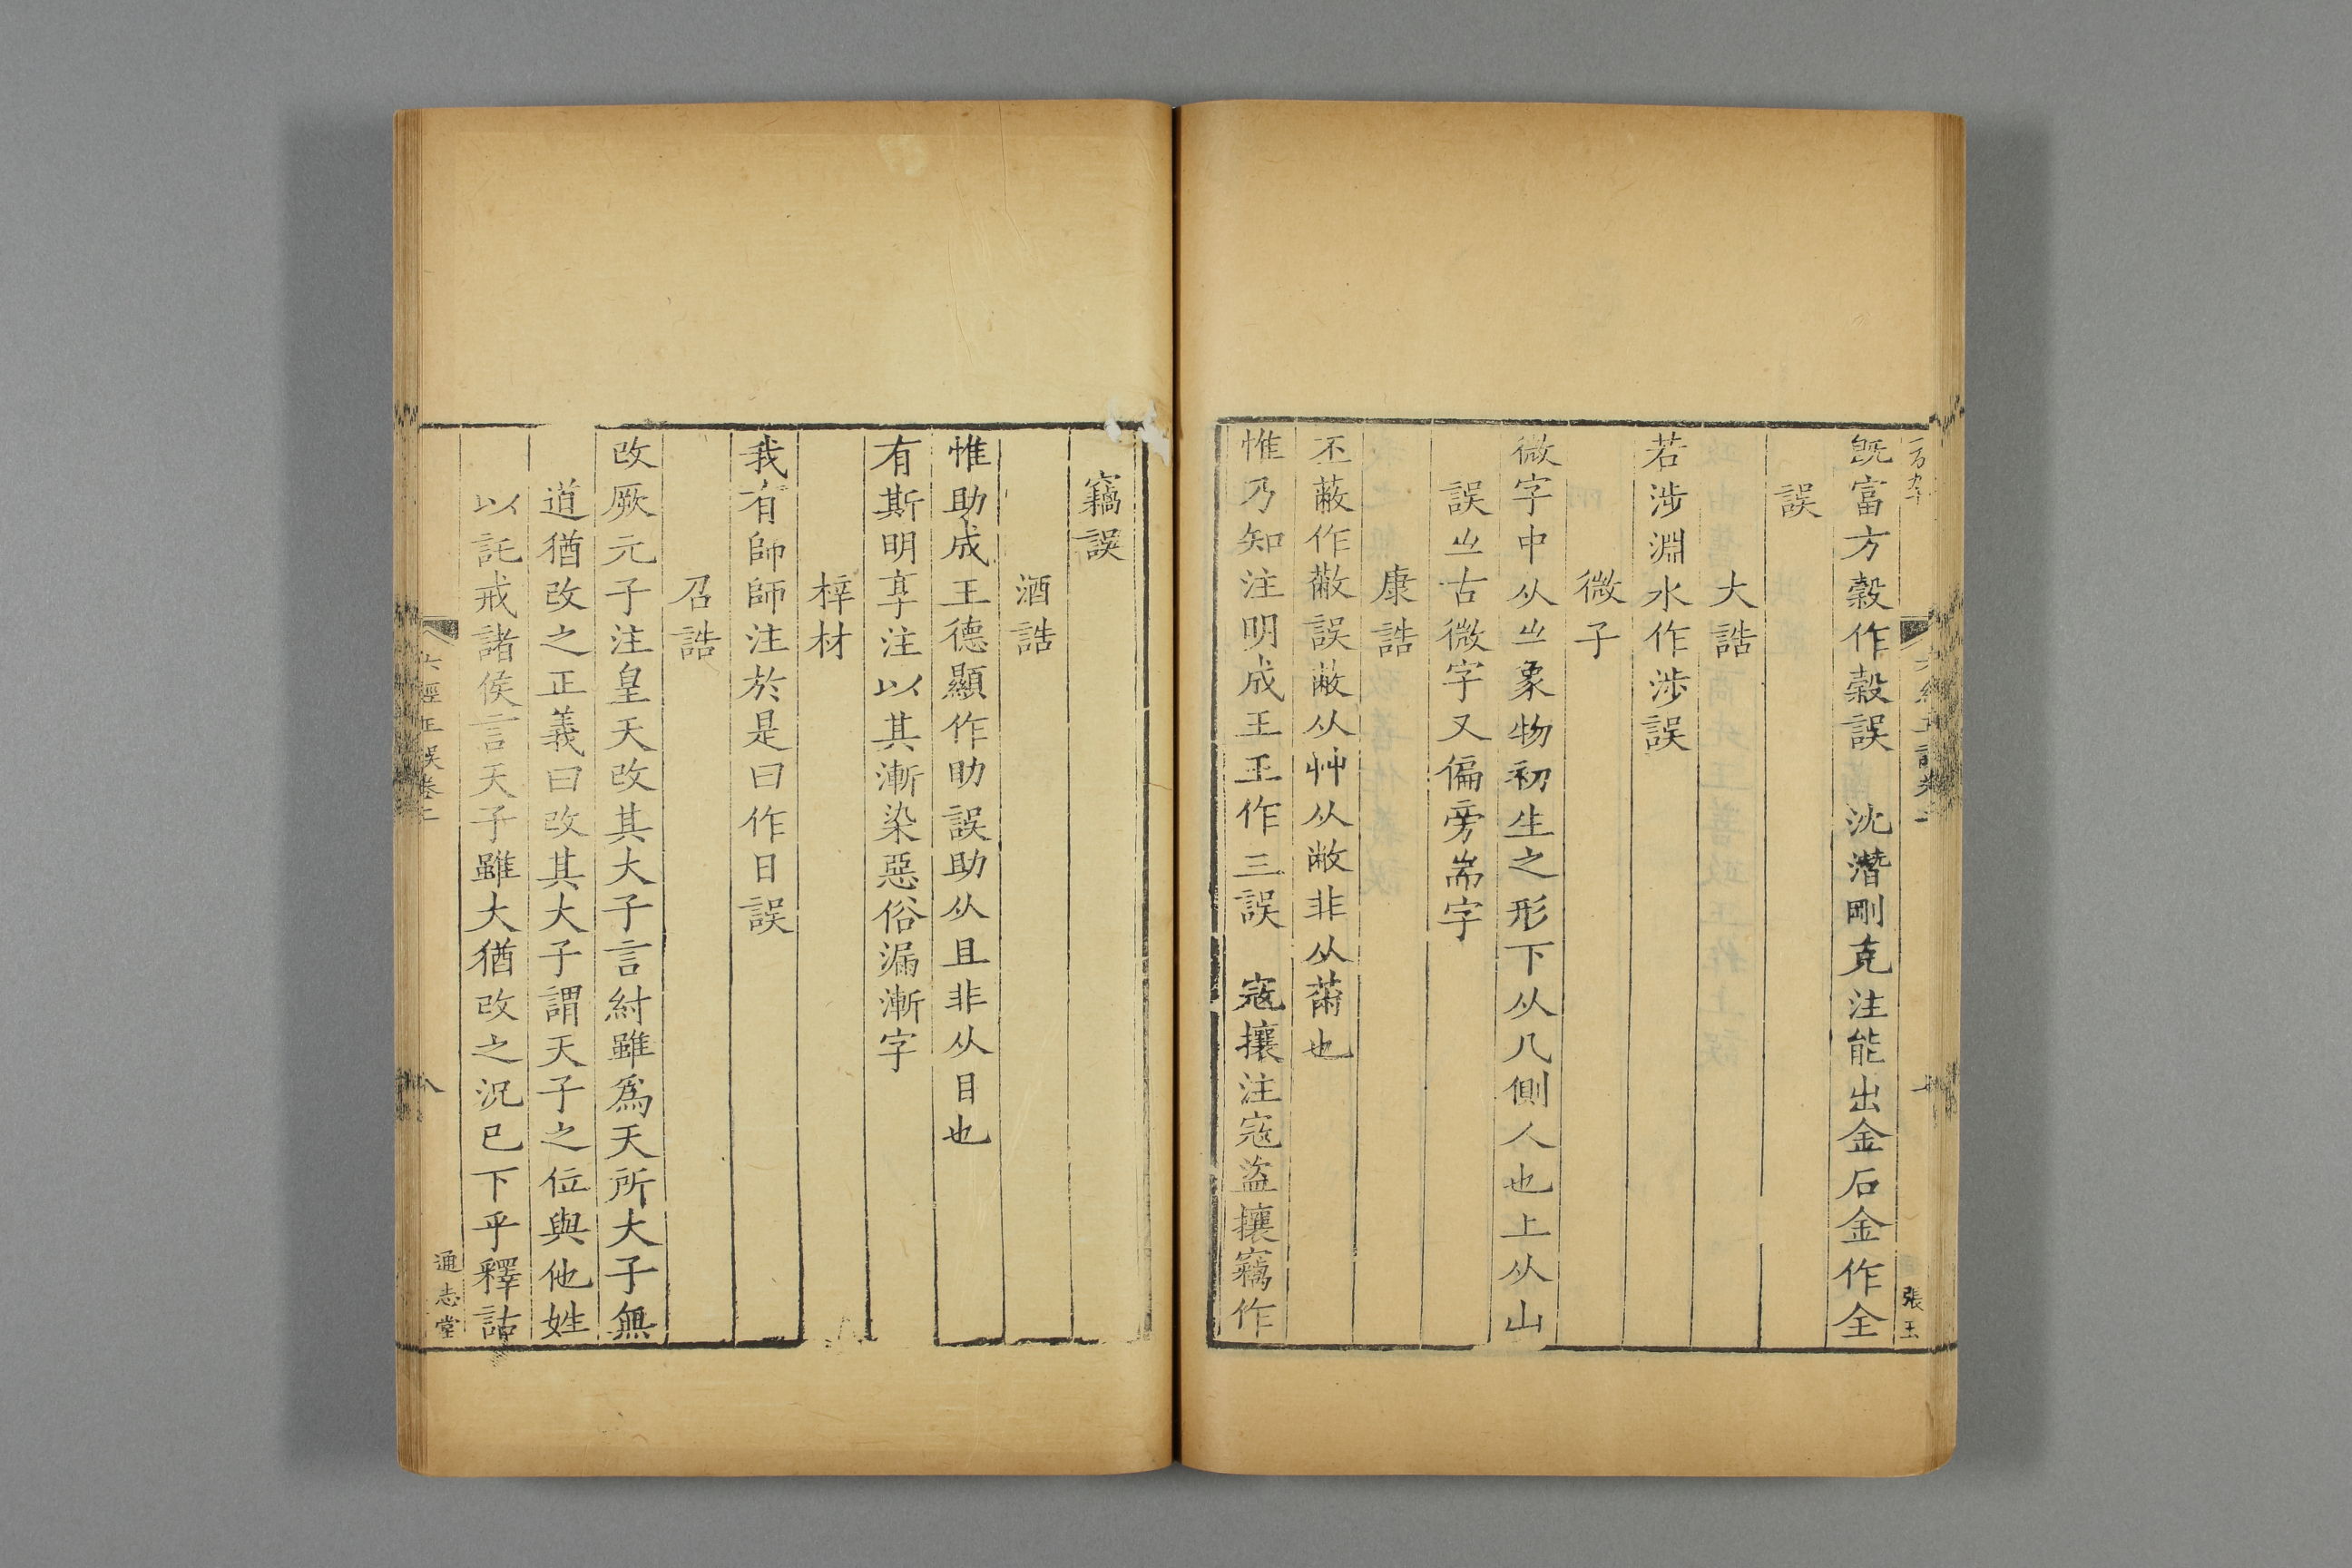 既富方穀作榖誤　沈潛剛克注能出金石金作全
誤
大誥
若涉淵水作渉誤
微子
微字中从𡵂象物初生之形下从几側人也上从山
誤𡵂古微字又偏旁耑字
康誥
丕蔽作蔽誤蔽从艸从敝非从㡀也
惟乃知注明成王王作三誤　寇攘注寇盜攘竊作
張玉
竊誤
酒誥
惟助成王德顯作助誤助从且非从目也
有斯明享注以其漸染惡俗漏漸字
梓材
我有師師注於是曰作日誤
召誥
改厥元子注皇天改其大子言紂雖爲天所大子無
道猶改之正義曰改其大子謂天子之位與他姓
以託戒諸侯言天子雖大猶改之況已下乎釋詁
六經正誤卷二
八
通志堂